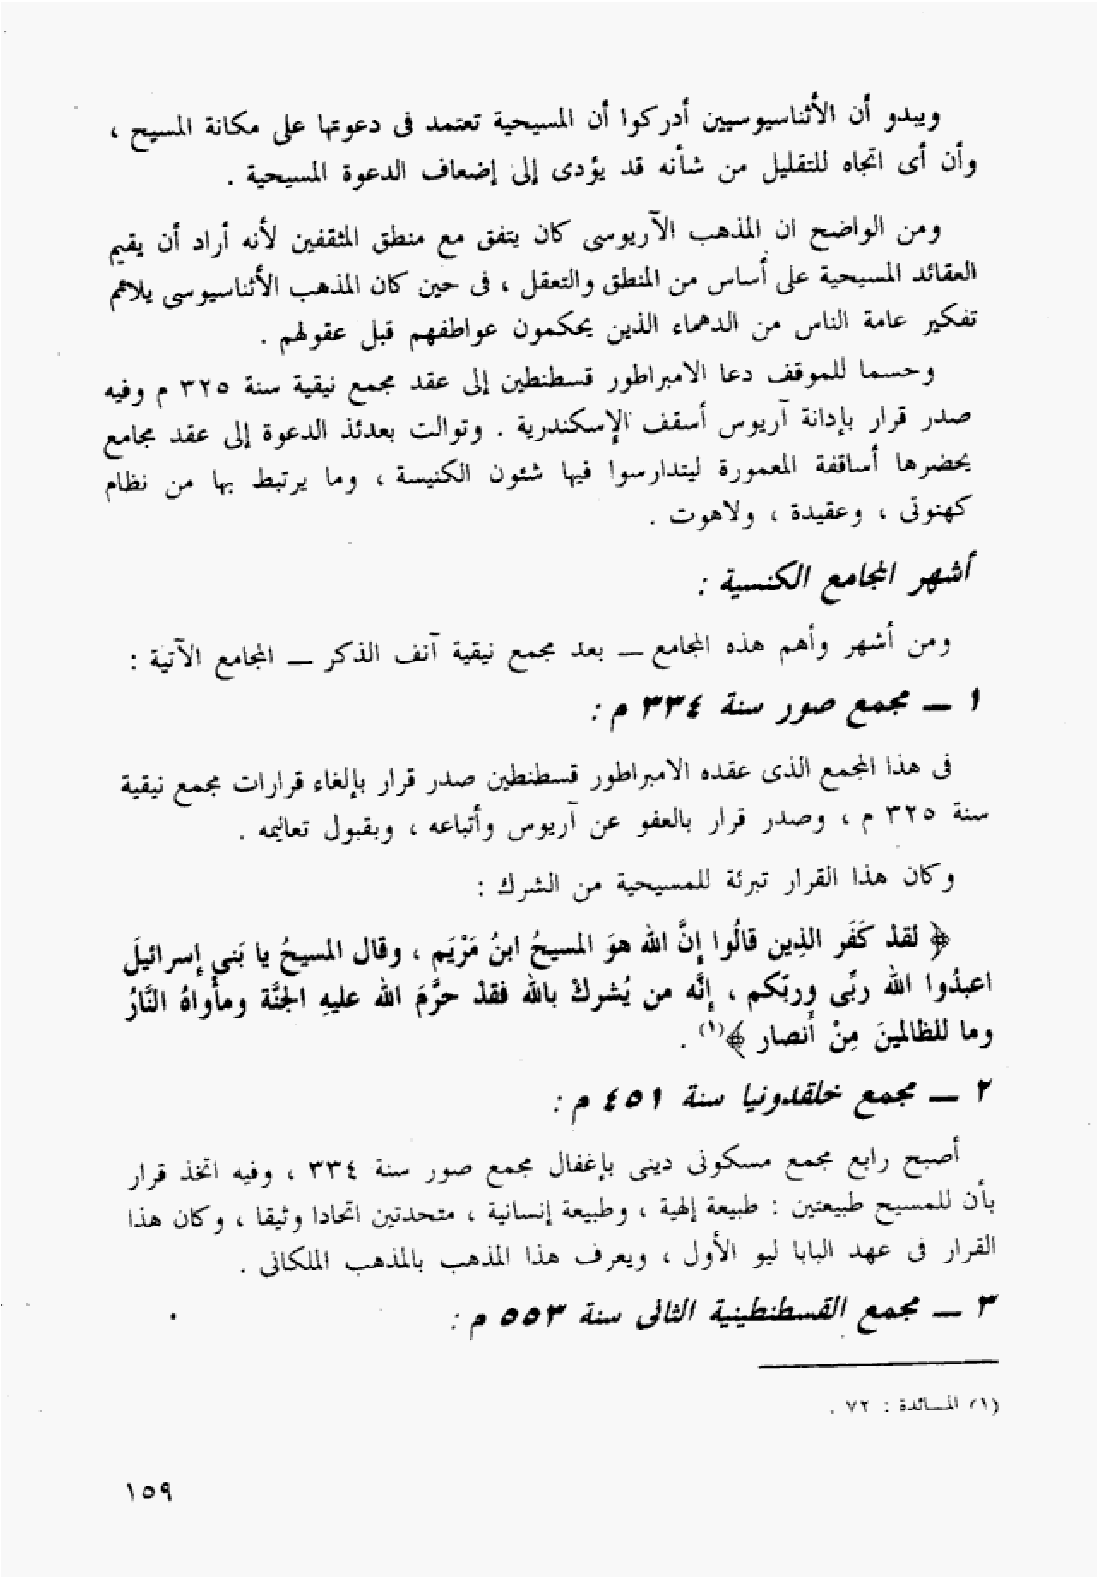 ويبدو أن الأثناسيوسيين أدركوا أن المسيحية تعتمد فى دعوتها على مكانة المسيح ،
وأن أى اتجاه للتقليل من شأنه قد يؤدى إلى إضعاف الدعوة المسيحية .
ومن الواضح ان المذهب الآريوسى كان يتفق مع منطق المثقفين لأنه أراد أن يقيم
العقائد المسيحية على أساس من المنطق والتعقل ، فى حين كان المذهب الأثناسيوسى يلائم
تفكير عامة الناس من الدهماء الذين يحكمون عواطفهم قبل عقولهم .
وحسما للموقف دعا الامبراطور قسطنطين إلى عقد مجمع نيقية سنة ٣٢٥ م وفيه
صدر قرار بإدانة آريوس أسقف الإسكندرية . وتوالت بعدئذ الدعوة إلى عقد مجامع
يحضرها أساقفة المعمورة ليتدارسوا فيها شئون الكنيسة ، وما يرتبط بها من نظام
كهنوتى ، وعقيدة ، ولاهوت .
أشهر المجامع الكنسية :
ومن أشهر وأهم هذه المجامع — بعد مجمع نيقية آنف الذكر — المجامع الآتية :
١ — مجمع صور سنة ٣٣٤ م :
فى هذا المجمع الذى عقده الامبراطور قسطنطين صدر قرار بإلغاء قرارات مجمع نيقية
سنة ٣٢٥ م ، وصدر قرار بالعفو عن آريوس وأتباعه ، وبقبول تعاليمه .
وكان هذا القرار تبرئة للمسيحية من الشرك :
﴿ لقدْ كَفَر الذِين قالُوا إنَّ الله هوَ المسيحُ ابنُ مَرْيَم ، وقال المسيحُ يا بَنى إسرائيلَ
اعبدُوا الله ربِّى وربّكم ، إنَّه من يُشركْ بالله فقدْ حرَّمَ الله عليهِ الجنَّة ومأواهُ النَّارُ
وما للظالمينَ مِنْ أنصار ﴾(١) .
٢ — مجمع خلقدونيا سنة ٤٥١ م :
أصبح رابع مجمع مسكونى دينى بإغفال مجمع صور سنة ٣٣٤ ، وفيه اتخذ قرار
بأن للمسيح طبيعتين : طبيعة إلهية ، وطبيعة إنسانية ، متحدتين اتحادا وثيقا ، وكان هذا
القرار فى عهد البابا ليو الأول ، ويعرف هذا المذهب بالمذهب الملكانى .
٣ — مجمع القسطنطينية الثانى سنة ٥٥٣ م :
(١) المائدة : ٧٢ .
١٥٩